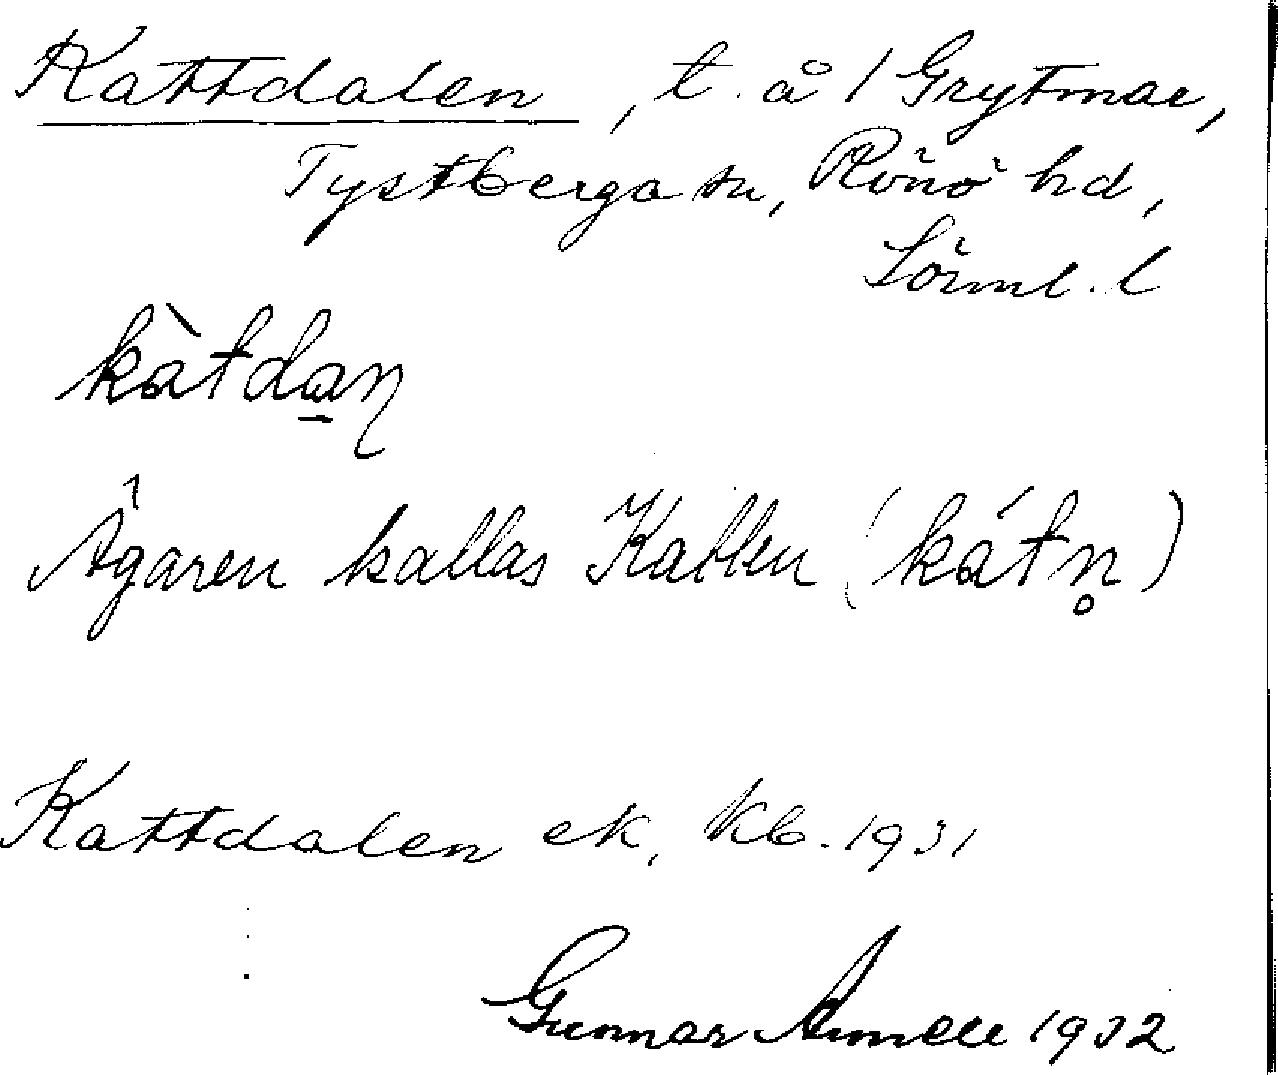 Kattdalen, t. å 1 Grytmar,
Tystberga sn, Rönö hd,
Sörml. l
kàtdan
Ägaren kallas Katten (kátn̥)
Kattdalen ek. Kb. 1931
Gunnar 1932